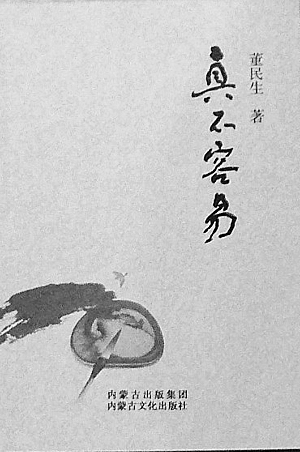 董民生 著
真不容易
内蒙古出版集团
内蒙古文化出版社